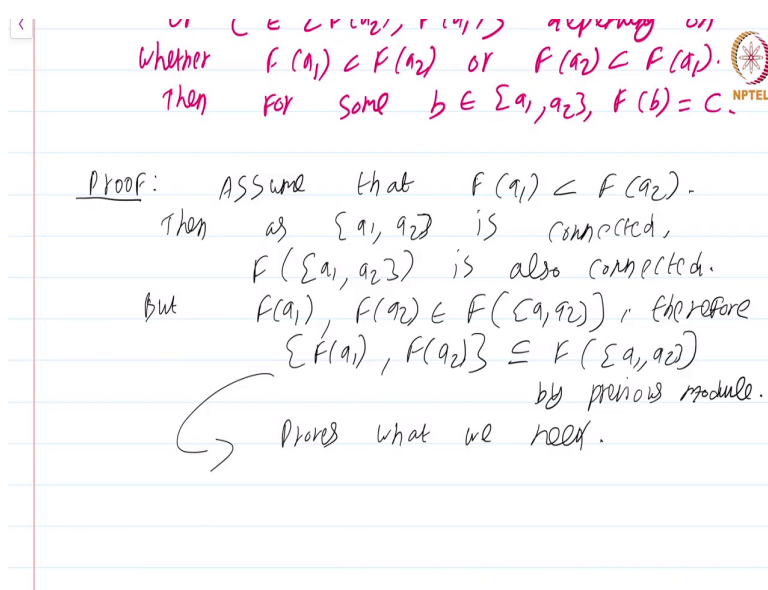 or C ∈ [F(a2), F(a1)] depending on
whether F(a1) < F(a2) or F(a2) < F(a1).
Then for some b ∈ [a1, a2], F(b) = C.
NPTEL
Proof: Assume that F(a1) < F(a2).
Then as [a1, a2] is connected,
F([a1, a2]) is also connected.
But F(a1), F(a2) ∈ F([a1, a2]), therefore
[F(a1), F(a2)] ⊆ F([a1, a2])
by previous module.
Proves what we need.